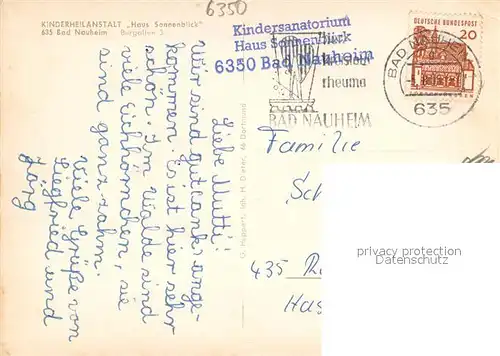 6350
KINDERHEILANSTALT „Haus Sonnenblick"
635 Bad Nauheim Burgallee 3
Kindersanatorium
Haus Sonnenblick
6350 Bad Nauheim
Herz
rheuma
BAD NAUHEIM
DEUTSCHE BUNDESPOST
20
BAD NAUHEIM
635
Liebe Mutti!
Wir sind gut ange-
kommen. Es ist hier sehr
schön. Im Walde sind
viele Eichhörnchen, sie
sind ganz zahm.
Viele Grüße von
Siegfried und
Jörg
Familie
Sch
435 R
Has
privacy protection
Datenschutz